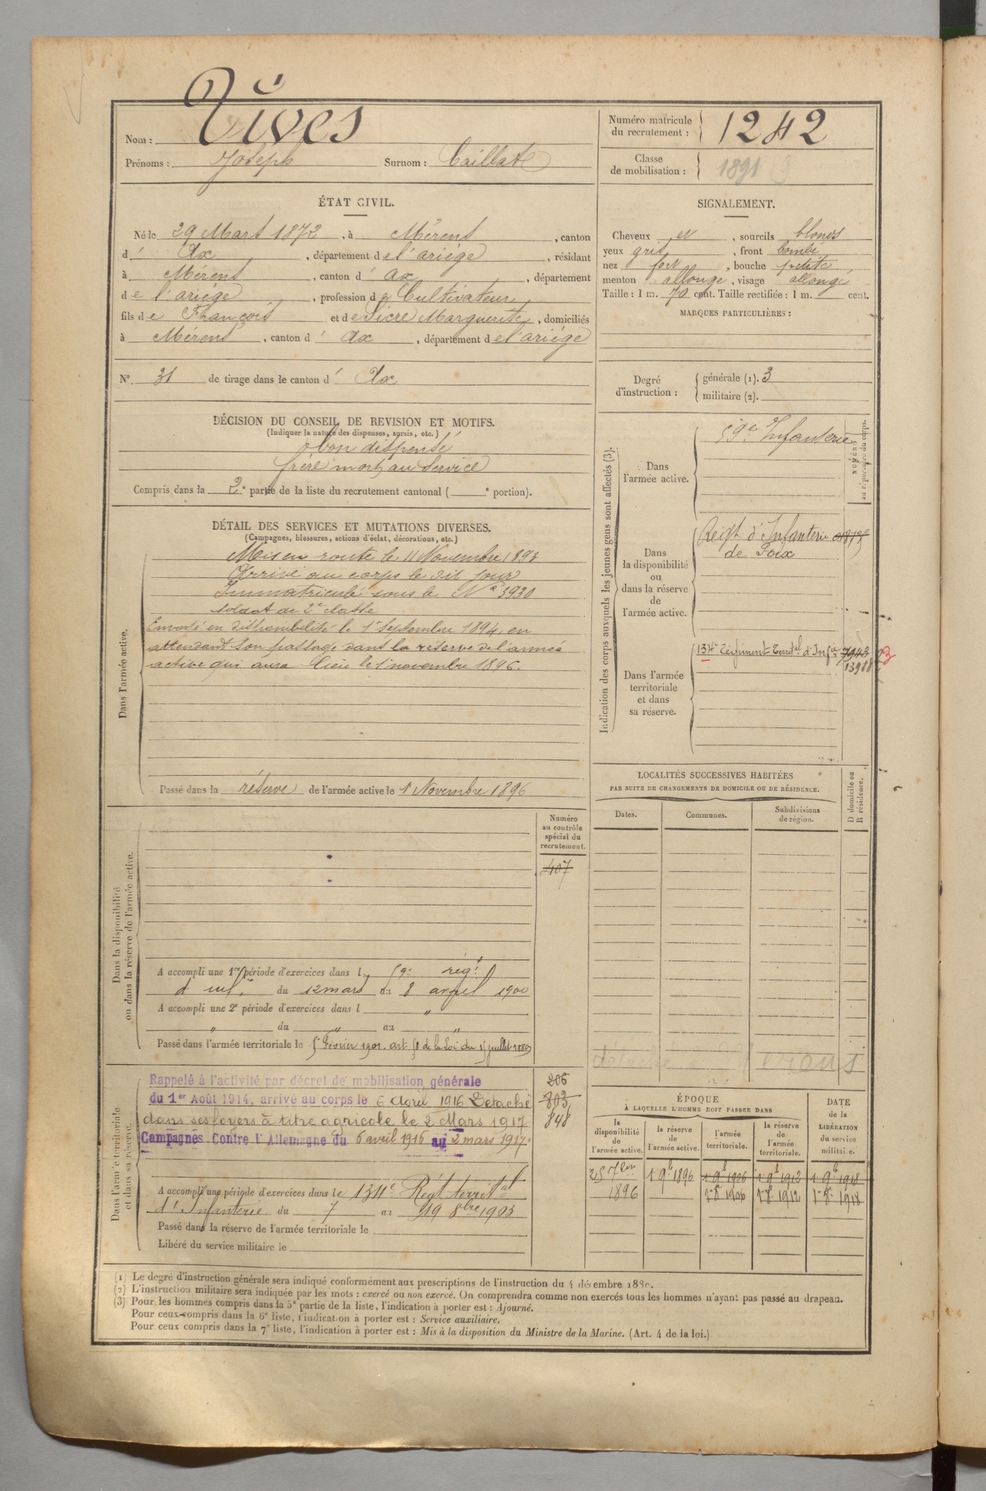 Nom : Vives
Prénoms : Joseph Surnom : Caillate
Numéro matricule du recrutement : 1242
Classe de mobilisation : 1891
ÉTAT CIVIL.
Né le 29 Mars 1872, à Mérens, canton
d' Ax, département de l'ariége, résidant
à Mérens, canton d' ax, département
de l'ariége, profession de Cultivateur
fils de François et de Sicre Marguerite, domiciliés
à Mérens, canton d' ax, département de l'ariége
N° 31 de tirage dans le canton d' Ax
SIGNALEMENT.
Cheveux et, sourcils blonds
yeux gris, front bombé
nez fort, bouche petite
menton allongé, visage allongé
Taille : 1 m. 70 cent. Taille rectifiée : 1 m. cent.
MARQUES PARTICULIÈRES :
Degré d'instruction : générale (1). 3
militaire (2).
DÉCISION DU CONSEIL DE REVISION ET MOTIFS.
(Indiquer la nature des dispenses, sursis, etc.)
bon dispensé
frère mort au service
Compris dans la 2e partie de la liste du recrutement cantonal ( e portion).
DÉTAIL DES SERVICES ET MUTATIONS DIVERSES.
(Campagnes, blessures, actions d'éclat, décorations, etc.)
Dans l'armée active.
Mis en route le 11 Novembre 1893
Arrivé au corps le dit jour
Immatriculé sous le N° 3930
soldat de 2e classe
Envoyé en disponibilité le 1 Septembre 1894, en
attendant son passage dans la réserve de l'armée
active qui aura lieu le 1 novembre 1896
Passé dans la réserve de l'armée active le 1 Novembre 1896
Indication des corps auxquels les jeunes gens sont affectés (3).
Dans l'armée active.
59e Infanterie
Dans la disponibilité ou dans la réserve de l'armée active.
Reigt d'Infanterie
de Foix
Dans l'armée territoriale et dans sa réserve.
134e Régiment Territal d'Infie
13918
LOCALITÉS SUCCESSIVES HABITÉES
PAR SUITE DE CHANGEMENTS DE DOMICILE OU DE RÉSIDENCE.
Dates. Communes. Subdivisions de région. D domicile ou R résidence.
Dans la disponibilité ou dans la réserve de l'armée active.
Numéro au contrôle spécial du recrutement.
407
A accompli une 1re période d'exercices dans l 59e régt
d'inf. du 12 mars au 8 avril 1900
A accompli une 2e période d'exercices dans l "
" du " au "
Passé dans l'armée territoriale le
Dans l'armée territoriale et dans sa réserve.
Rappelé à l'activité par décret de mobilisation générale
du 1er Août 1914, arrivé au corps le 6 avril 1916 Détaché
dans ses foyers à titre agricole le 2 Mars 1917
Campagnes Contre l'Allemagne du 6 avril 1916 au 2 mars 1917
206
803
848
A accompli une période d'exercices dans le 134e Régt territal
d'Infanterie du 7 au 19 8bre 1905
Passé dans la réserve de l'armée territoriale le
Libéré du service militaire le
ÉPOQUE
À LAQUELLE L'HOMME DOIT PASSER DANS
DATE de la LIBÉRATION du service militaire.
la disponibilité de l'armée active. la réserve de l'armée active. l'armée territoriale. la réserve de l'armée territoriale.
1896 1 9b 1896 1 9b 1906 1 9b 1912 1 9b 1918
1 8b 1906 1 8b 1912 1 8b 1918
(1) Le degré d'instruction générale sera indiqué conformément aux prescriptions de l'instruction du 4 décembre 1889.
(2) L'instruction militaire sera indiquée par les mots : exercé ou non exercé. On comprendra comme non exercés tous les hommes n'ayant pas passé au drapeau.
(3) Pour les hommes compris dans la 5e partie de la liste, l'indication à porter est : Ajourné.
Pour ceux compris dans la 6e liste, l'indication à porter est : Service auxiliaire.
Pour ceux compris dans la 7e liste, l'indication à porter est : Mis à la disposition du Ministre de la Marine. (Art. 4 de la loi.)